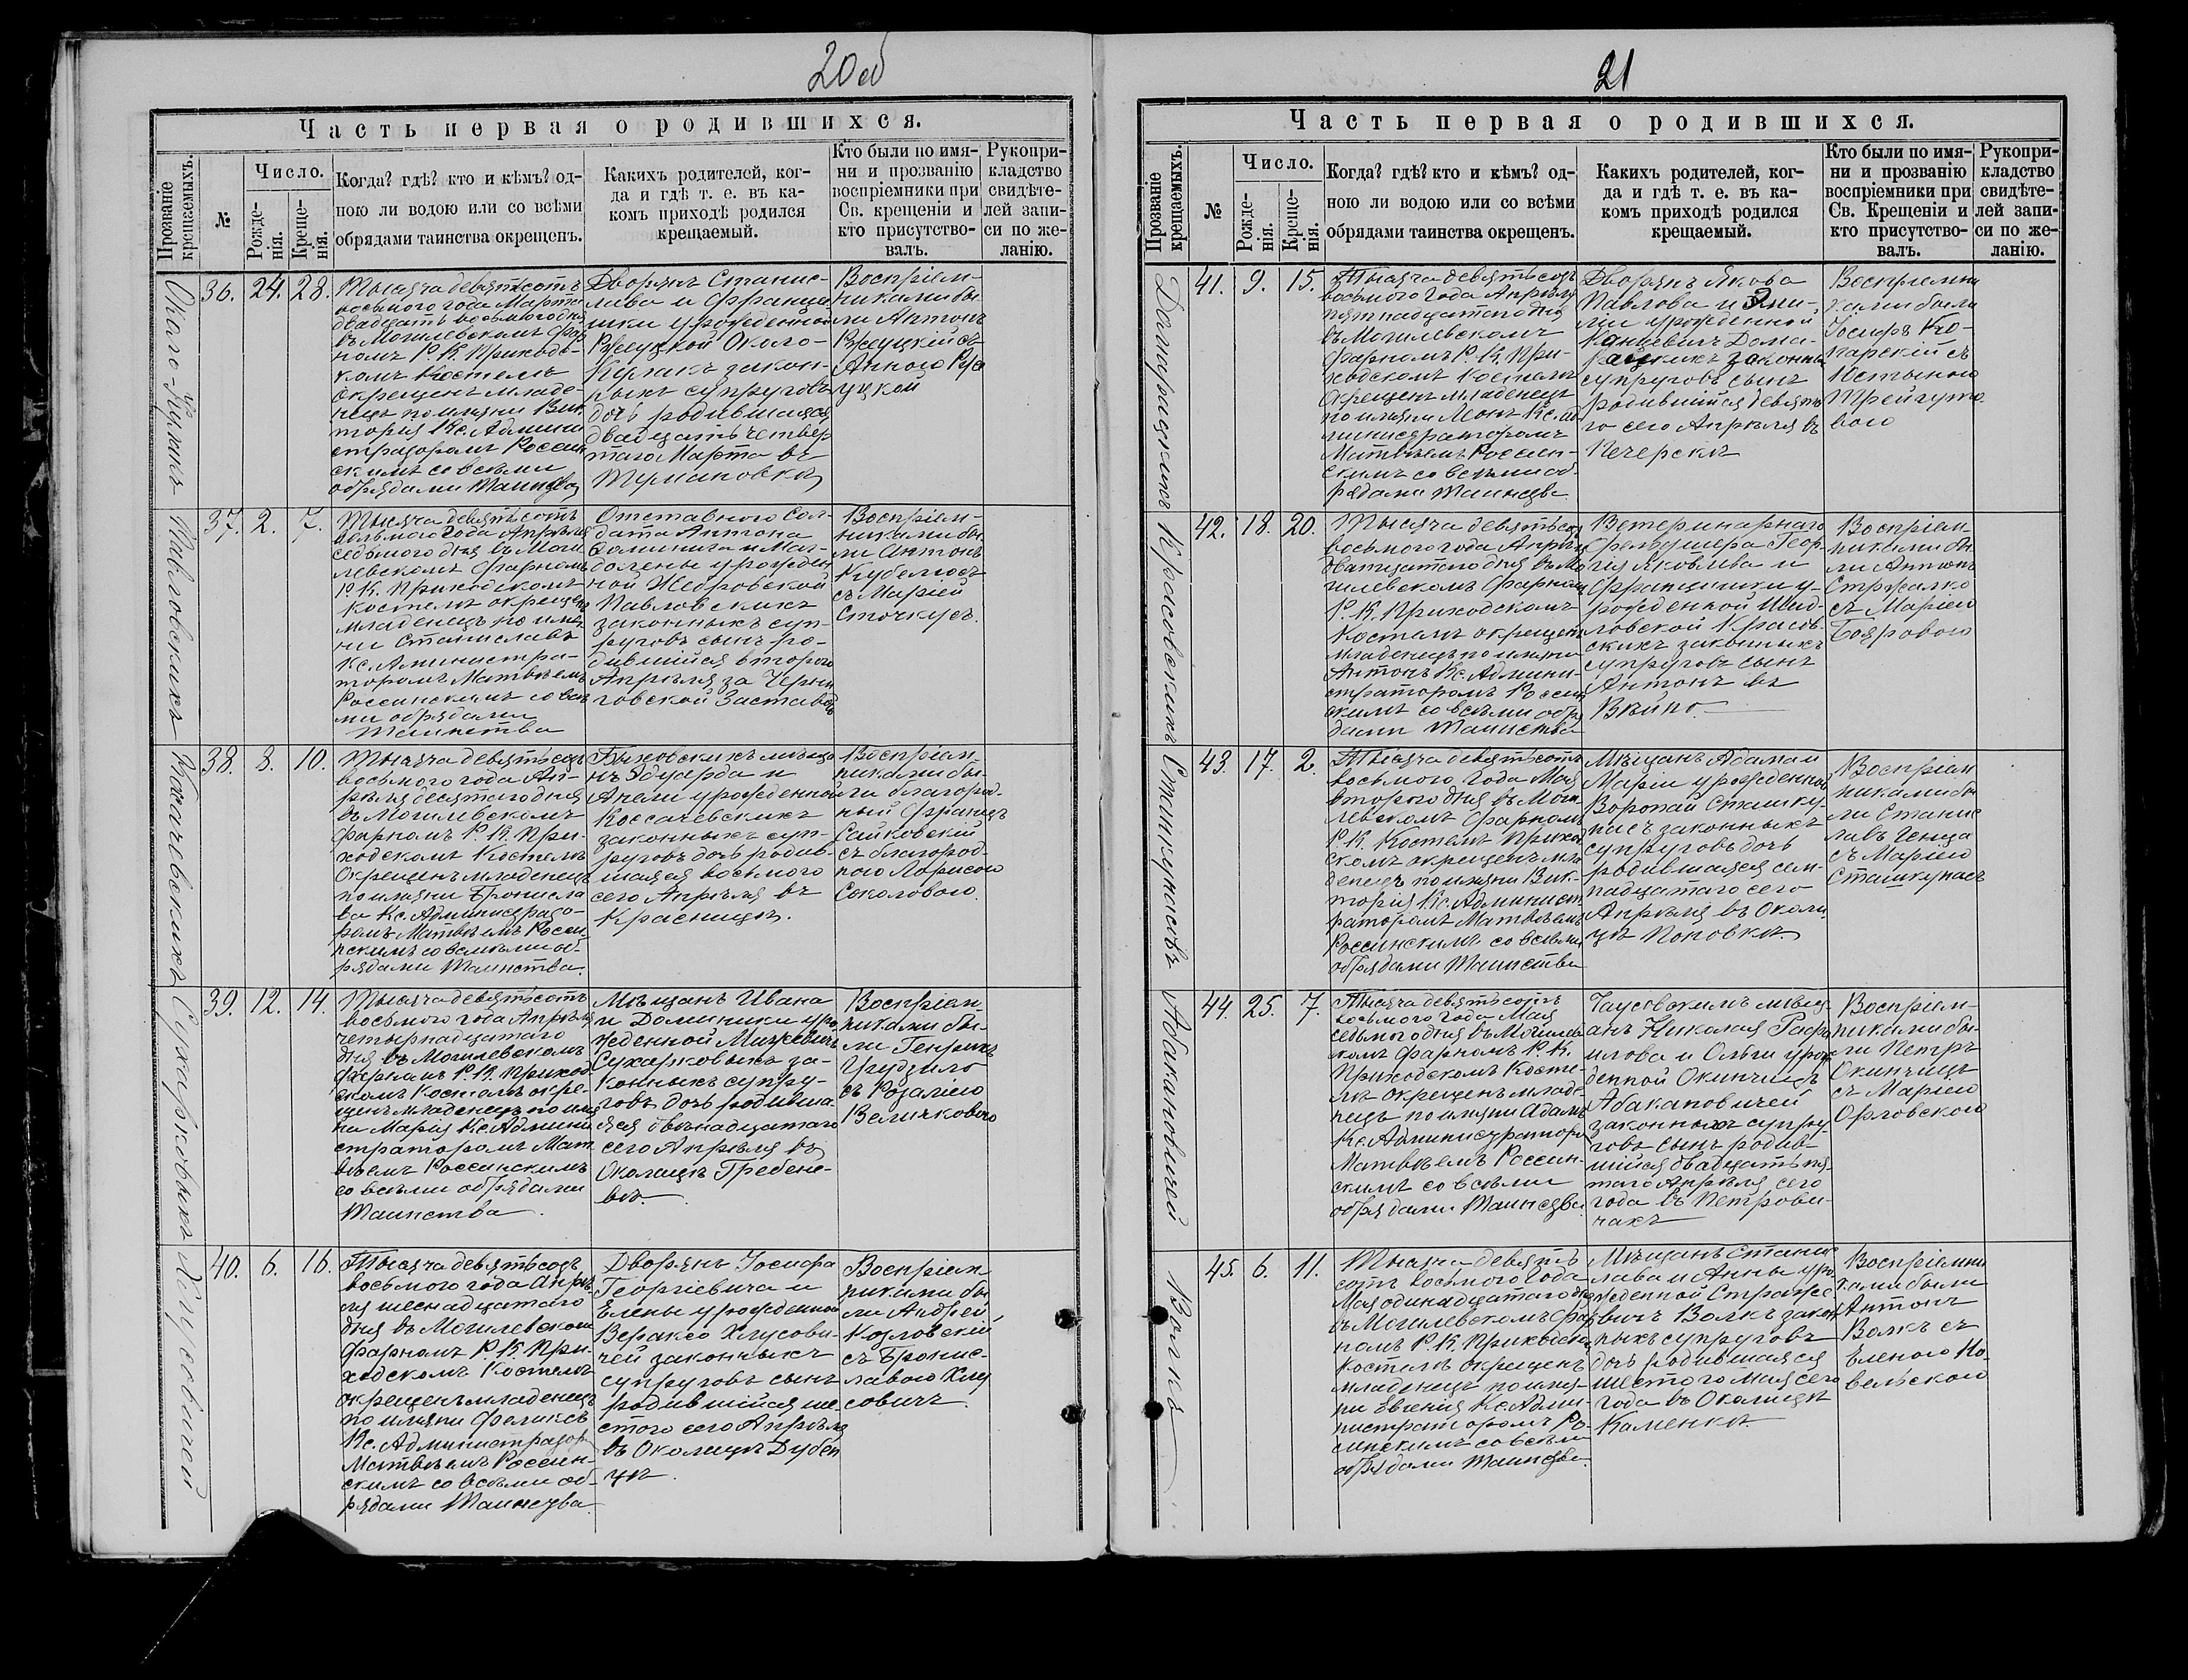 20об
Часть первая о родившихся.
Прозваніе крещаемыхъ.
№
Число.
Рожде-
нія.
Креще-
нія.
Когда? гдѣ? кто и кѣмъ? од-
ною ли водою или со всѣми
обрядами таинства окрещенъ.
Какихъ родителей, ког-
да и гдѣ т. е. въ ка-
комъ приходѣ родился
крещаемый.
Кто были по имя-
ни и прозванію
воспріемники при
Св. крещеніи и
кто присутство-
валъ.
Рукопри-
кладство
свидѣте-
лей запи-
си по же-
ланію.
36. 24. 28.
Тысяча девятьсотъ
восьмого года Марта
двадцать восьмого дня
въ Могилевскомъ Фар
номъ Р. К. Приход-
комъ Костелѣ
окрещенъ младе-
нецъ по имяни Вик
торія Кс. Админи
страторомъ Россин
скимъ со всѣми
обрядами Таинства
Дворянъ Станис-
лава и Францы
шки урожденной
Ржуцкой Около-
Кулакъ закон-
ныхъ супруговъ
дочь родившаяся
двадцать четвер
таго Марта въ
Тумановкѣ
Воспріем-
никами бы
ли Антонъ
Ржуцкій съ
Анною Рж
уцкой
Павловскихъ
37. 2. 7.
Тысяча девятьсотъ
восьмого года Апрѣля
седьмого дня въ Моги
левскомъ Фарномъ
Р. К. Приходскомъ
Костелѣ окрещенъ
младенецъ по имя
ни Станиславъ
Кс. Администра-
торомъ Матвѣемъ
Россинскимъ со всѣ
ми обрядами
Таинства
Отставного Сол-
дата Антона
Доминика и Маг-
далены урожден
ной Недровской
Павловскихъ
законныхъ суп-
руговъ сынъ ро-
дившійся второго
Апрѣля за Черни
говской Заставой
Воспріем-
никами бы-
ли Антонъ
Кубелюсъ
съ Маріей
Сточкусъ.
38. 8. 10.
Тысяча девятьсотъ
восьмого года Ап-
рѣля десятаго дня
въ Могилевскомъ
Фарномъ Р. К. При-
ходскомъ Костелѣ
окрещенъ младенецъ
по имяни Бронисла
ва Кс. Администрато-
ромъ Матвѣемъ Росси-
нскимъ со всѣми об-
рядами Таинства.
Быховскихъ мѣща
нъ Эдуарда и
Анели урожденной
Коссачевскихъ
законныхъ суп-
руговъ дочь родив-
шаяся восьмого
сего Апрѣля въ
Красницѣ.
Воспріем-
никами бы-
ли благород-
ный Францъ
Сайковскій
съ благород-
ною Ларисою
Соколовою.
Сухарковыхъ
39. 12. 14.
Тысяча девятьсотъ
восьмого года Апрѣля
четырнадцатаго
дня въ Могилевскомъ
Фарномъ Р. К. Приход-
скомъ Костелѣ окре-
щенъ младенецъ по имя
ни Марія Кс. Админи
страторомъ Мат
вѣемъ Россинскимъ
со всѣми обрядами
Таинства.
Мѣщанъ Ивана
и Доминики уро
жденной Мицкевичъ
Сухарковыхъ за-
конныхъ супру-
говъ дочь родивша
яся двѣнадцатаго
сего Апрѣля въ
Околицѣ Гребене-
вѣ.
Воспріем-
никами бы-
ли Генрихъ
Грудзило
съ Розаліею
Величковою
Хлусовичей
40. 6. 16.
Тысяча девятьсотъ
восьмого года Апрѣ-
ля шеснадцатаго
дня въ Могилевском
Фарномъ Р. К. При-
ходскомъ Костелѣ
окрещенъ младенецъ
по имяни Феликсъ
Кс. Администратор
Матвѣемъ Россин-
скимъ со всѣми об-
рядами Таинства.
Дворянъ Іосифа
Георгіевича и
Елены урожденной
Вераксо Хлусови-
чей законныхъ
супруговъ сынъ
родившійся ше-
стого сего Апрѣля
въ Околицѣ Дубен
цѣ.
Воспріем-
никами бы
ли Андрей
Козловскій
съ Бронис-
лавою Хлу
совичъ.
21
Часть первая о родившихся.
Прозваніе крещаемыхъ.
№
Число.
Рожде-
нія.
Креще-
нія.
Когда? гдѣ? кто и кѣмъ? од-
ною ли водою или со всѣми
обрядами таинства окрещенъ.
Какихъ родителей, ког-
да и гдѣ т. е. въ ка-
комъ приходѣ родился
крещаемый.
Кто были по имя-
ни и прозванію
воспріемники при
Св. Крещеніи и
кто присутство-
валъ.
Рукопри-
кладство
свидѣте-
лей запи-
си по же-
ланію.
41. 9. 15.
Тысяча девятьсотъ
восьмого года Апрѣля
пятнадцатаго дня
въ Могилевскомъ
Фарномъ Р. К. При-
ходскомъ Костелѣ
окрещенъ младенецъ
по имяни Леонъ Кс. Ад
министраторомъ
Матвѣемъ Россин-
скимъ со всѣми об-
рядами Таинства
Дворянъ Якова
Павлова и Эми-
ліи урожденной
законны
супруговъ сынъ
родившійся девята
го сего Апрѣля въ
Печерскѣ
Воспріемни
ками были
Іосифъ
съ
Юстыною
вою
Красовскихъ
42. 18. 20.
Тысяча девятьсот
восьмого года Апрѣля
дватцатаго дня въ Мо
гилевскомъ Фарном
Р. К. Приходскомъ
Костелѣ окрещенъ
младенецъ по имяни
Антонъ Кс. Админи-
страторомъ Россин
скимъ со всѣми обря
дами Таинства
Ветеринарнаго
Фельдшера Геор-
гія Яковлева и
Францишки у-
рожденной Шид-
ловской Красов-
скихъ законныхъ
супруговъ сынъ
Антонъ въ
Вѣйно.
Воспріем-
никами бы
ли Антонъ
Стржалко
съ Маріею
Бояровою
Сташкунасъ
43. 17. 2.
Тысяча девятьсотъ
восьмого года Мая
второго дня въ Моги-
левскомъ Фарномъ
Р. К. Костелѣ Приход
скомъ окрещенъ мла
денецъ по имяни Вик-
торія Кс. Админист-
раторомъ Матвѣемъ
Россинскимъ со всѣми
обрядами Таинства
Мѣщанъ Адама и
Маріи урожденной
Воропай Сташку-
насъ законныхъ
супруговъ дочь
родившаяся сем-
надцатаго сего
Апрѣля въ Околи
цѣ Поповкѣ.
Воспріем
никами бы
ли Станис
лавъ
съ Маріею
Сташкунасъ
Абакановичей
44. 25. 7.
Тысяча девятьсотъ
восьмого года Мая
седьмого дня въ Могилев
скомъ Фарномъ Р. К.
Приходскомъ Косте-
лѣ окрещенъ младе-
нецъ по имяни Адамъ
Кс. Администраторо
Матвѣемъ Россин-
скимъ со всѣми
обрядами Таинства
Чаусовскимъ мѣщ-
анъ Николая Рафа
илова и Ольги урож
денной Окинчицъ
Абакановичей
законныхъ супру-
говъ сынъ родив-
шійся двадцать пя-
таго Апрѣля сего
года въ Петрови-
чахъ
Воспріем-
никами бы-
ли Петръ
Окинчицъ
съ Маріею
Орловскою
Волкъ
45. 6. 11.
Тысяча девять
сотъ восьмого года
Мая одинадцатаго дня
въ Могилевскомъ Фар
номъ Р. К. Приходском
Костелѣ окрещенъ
младенецъ по имя-
ни Евгенія Кс. Адми-
нистраторомъ Ро-
синскимъ со всѣми
обрядами Таинства.
Мѣщанъ Станис
лава и Анны уро
жденной Страже
вичъ Волкъ закон
ныхъ супруговъ
дочь родившаяся
шестого Мая сего
года въ Околицѣ
Каменкѣ.
Воспріемни
ками были
Антонъ
Волкъ съ
Еленою Ко-
вельскою